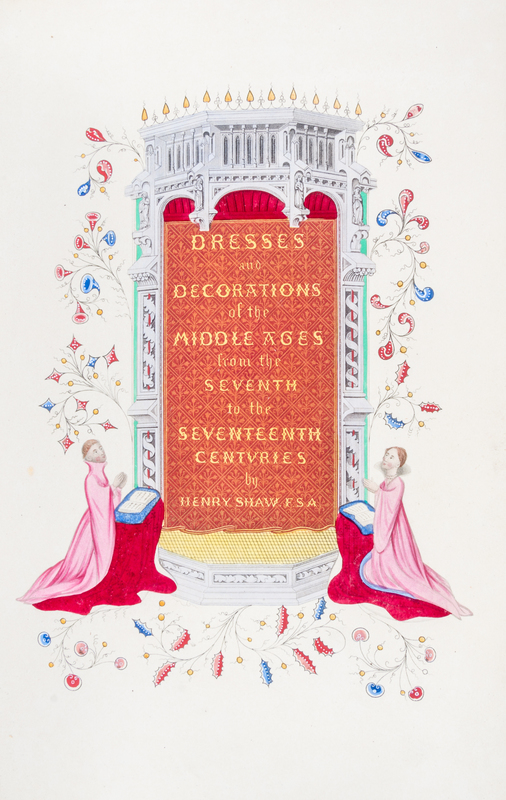 DRESSES
and
DECORATIONS
of the
MIDDLE AGES
from the
SEVENTH
to the
SEVENTEENTH
CENTVRIES
by
HENRY SHAW. F.S.A.